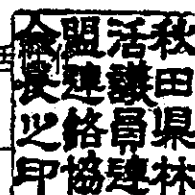 秋田県林
活議員連
盟連絡協
会長之印